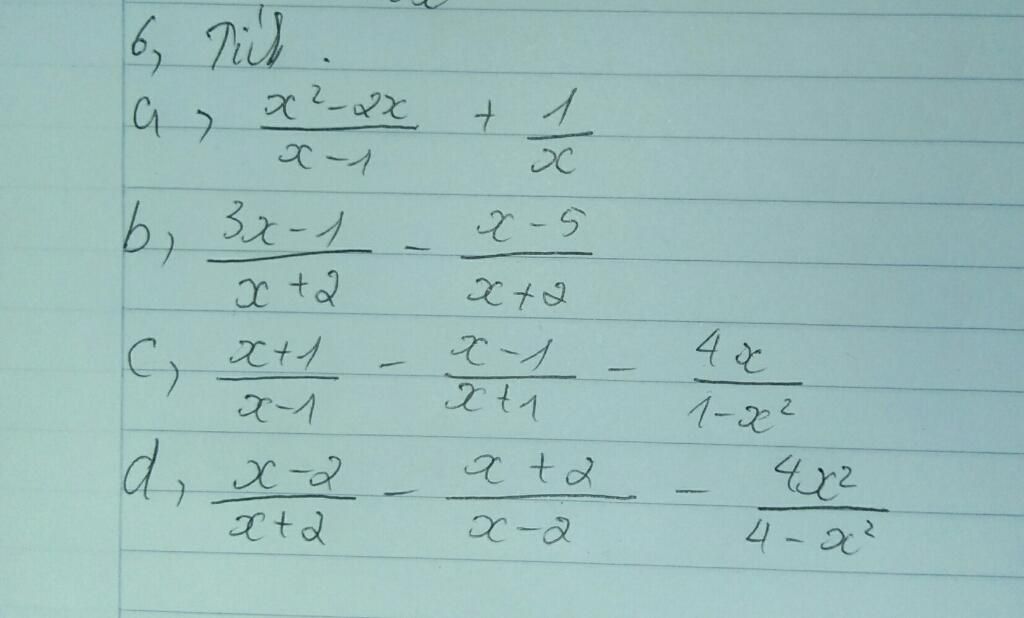 6,
a, \frac{x^2-2x}{x-1} + \frac{1}{x}
b, \frac{3x-1}{x+2} - \frac{x-5}{x+2}
c, \frac{x+1}{x-1} - \frac{x-1}{x+1} - \frac{4x}{1-x^2}
d, \frac{x-2}{x+2} - \frac{x+2}{x-2} - \frac{4x^2}{4-x^2}